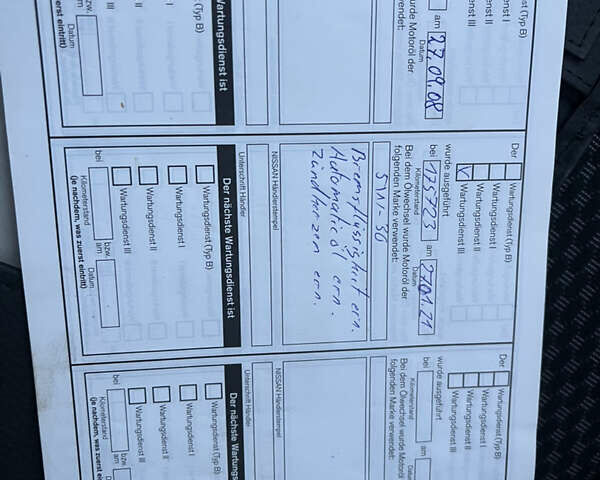 st (Typ B)
st I
st III
am
27.09.08
Datum
urde Motoröl der
rwendet:
Wartungsdienst ist
(Typ B)
bzw.
am
Datum
zuerst eintritt)
Der
Wartungsdienst (Typ B)
Wartungsdienst I
Wartungsdienst II
X Wartungsdienst III
wurde ausgeführt
bei 175723 am 27.01.21
Kilometerstand Datum
Bei dem Ölwechsel wurde Motoröl der
folgenden Marke verwendet:
5W-30
Bremsflüssigkeit ern.
Automaticöl ern.
Zündkerzen ern.
NISSAN Händlerstempel
Unterschrift Händler
Der nächste Wartungsdienst ist
Wartungsdienst (Typ B)
Wartungsdienst I
Wartungsdienst II
Wartungsdienst III
bei bzw. am
Kilometerstand Datum
(je nachdem, was zuerst eintritt)
Der
Wartungsdienst (Typ B)
Wartungsdienst I
Wartungsdienst II
Wartungsdienst III
wurde ausgeführt
bei am
Kilometerstand Dat
Bei dem Ölwechsel wurde Motoröl
folgenden Marke verwendet:
NISSAN Händlerstempel
Unterschrift Händler
Der nächste Wartungs
Wartungsdienst (Typ B)
Wartungsdienst I
Wartungsdienst II
Wartungsdienst III
bei bzw. am
Kilometerstand
(je nachdem, was zuerst